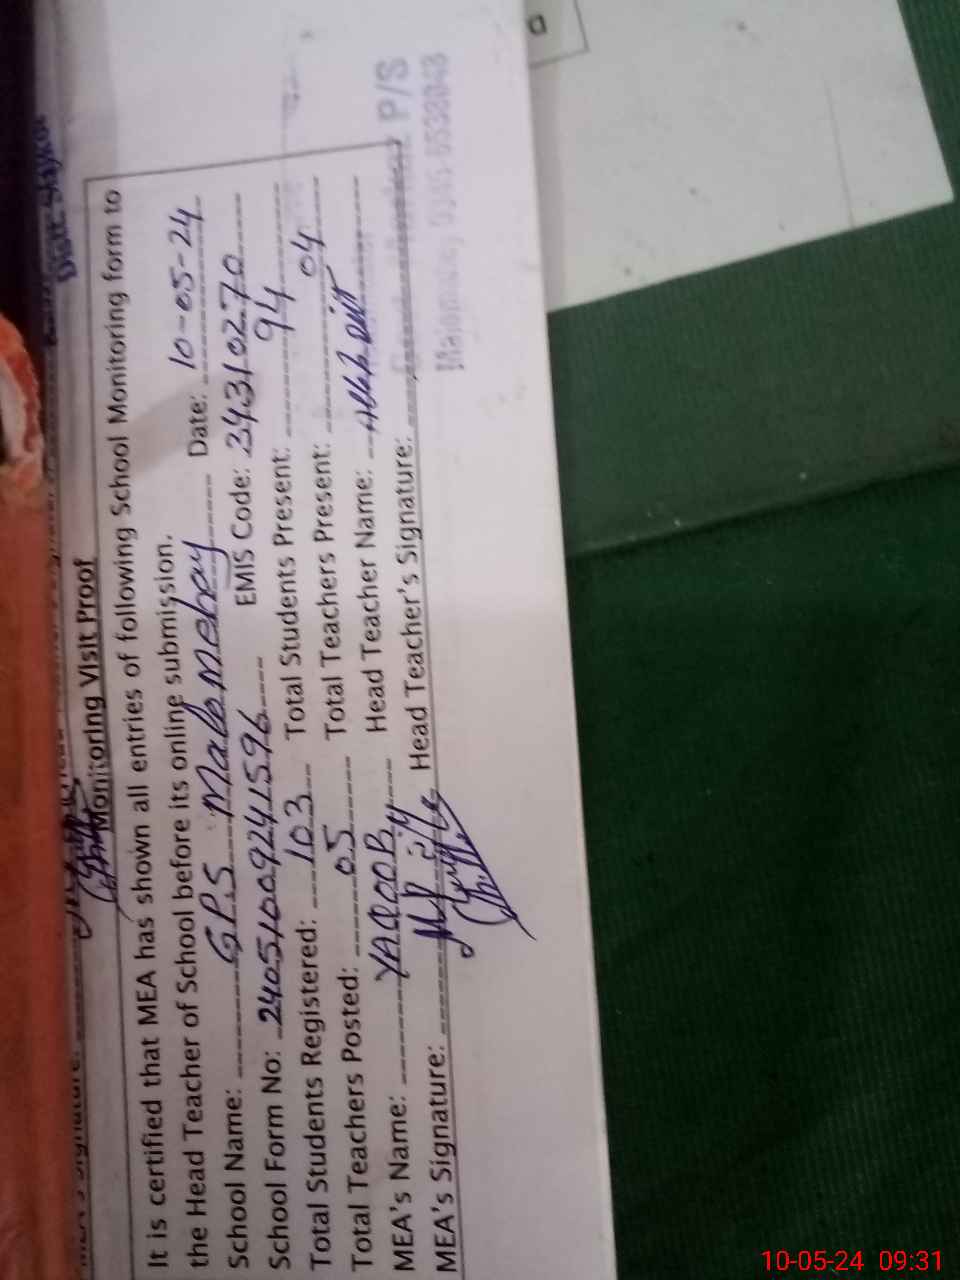 Monitoring Visit Proof
It is certified that MEA has shown all entries of following School Monitoring form to
the Head Teacher of School before its online submission.
School Name: G.P.S Date: 10-05-24
School Form No: 24051009241596 EMIS Code: 34310270
Total Students Registered: 103 Total Students Present: 94
Total Teachers Posted: 05 Total Teachers Present: 04
MEA's Name: YAQOOB Head Teacher Name:
MEA's Signature: Head Teacher's Signature:
P/S
MEA's Signature:
10-05-24 09:31